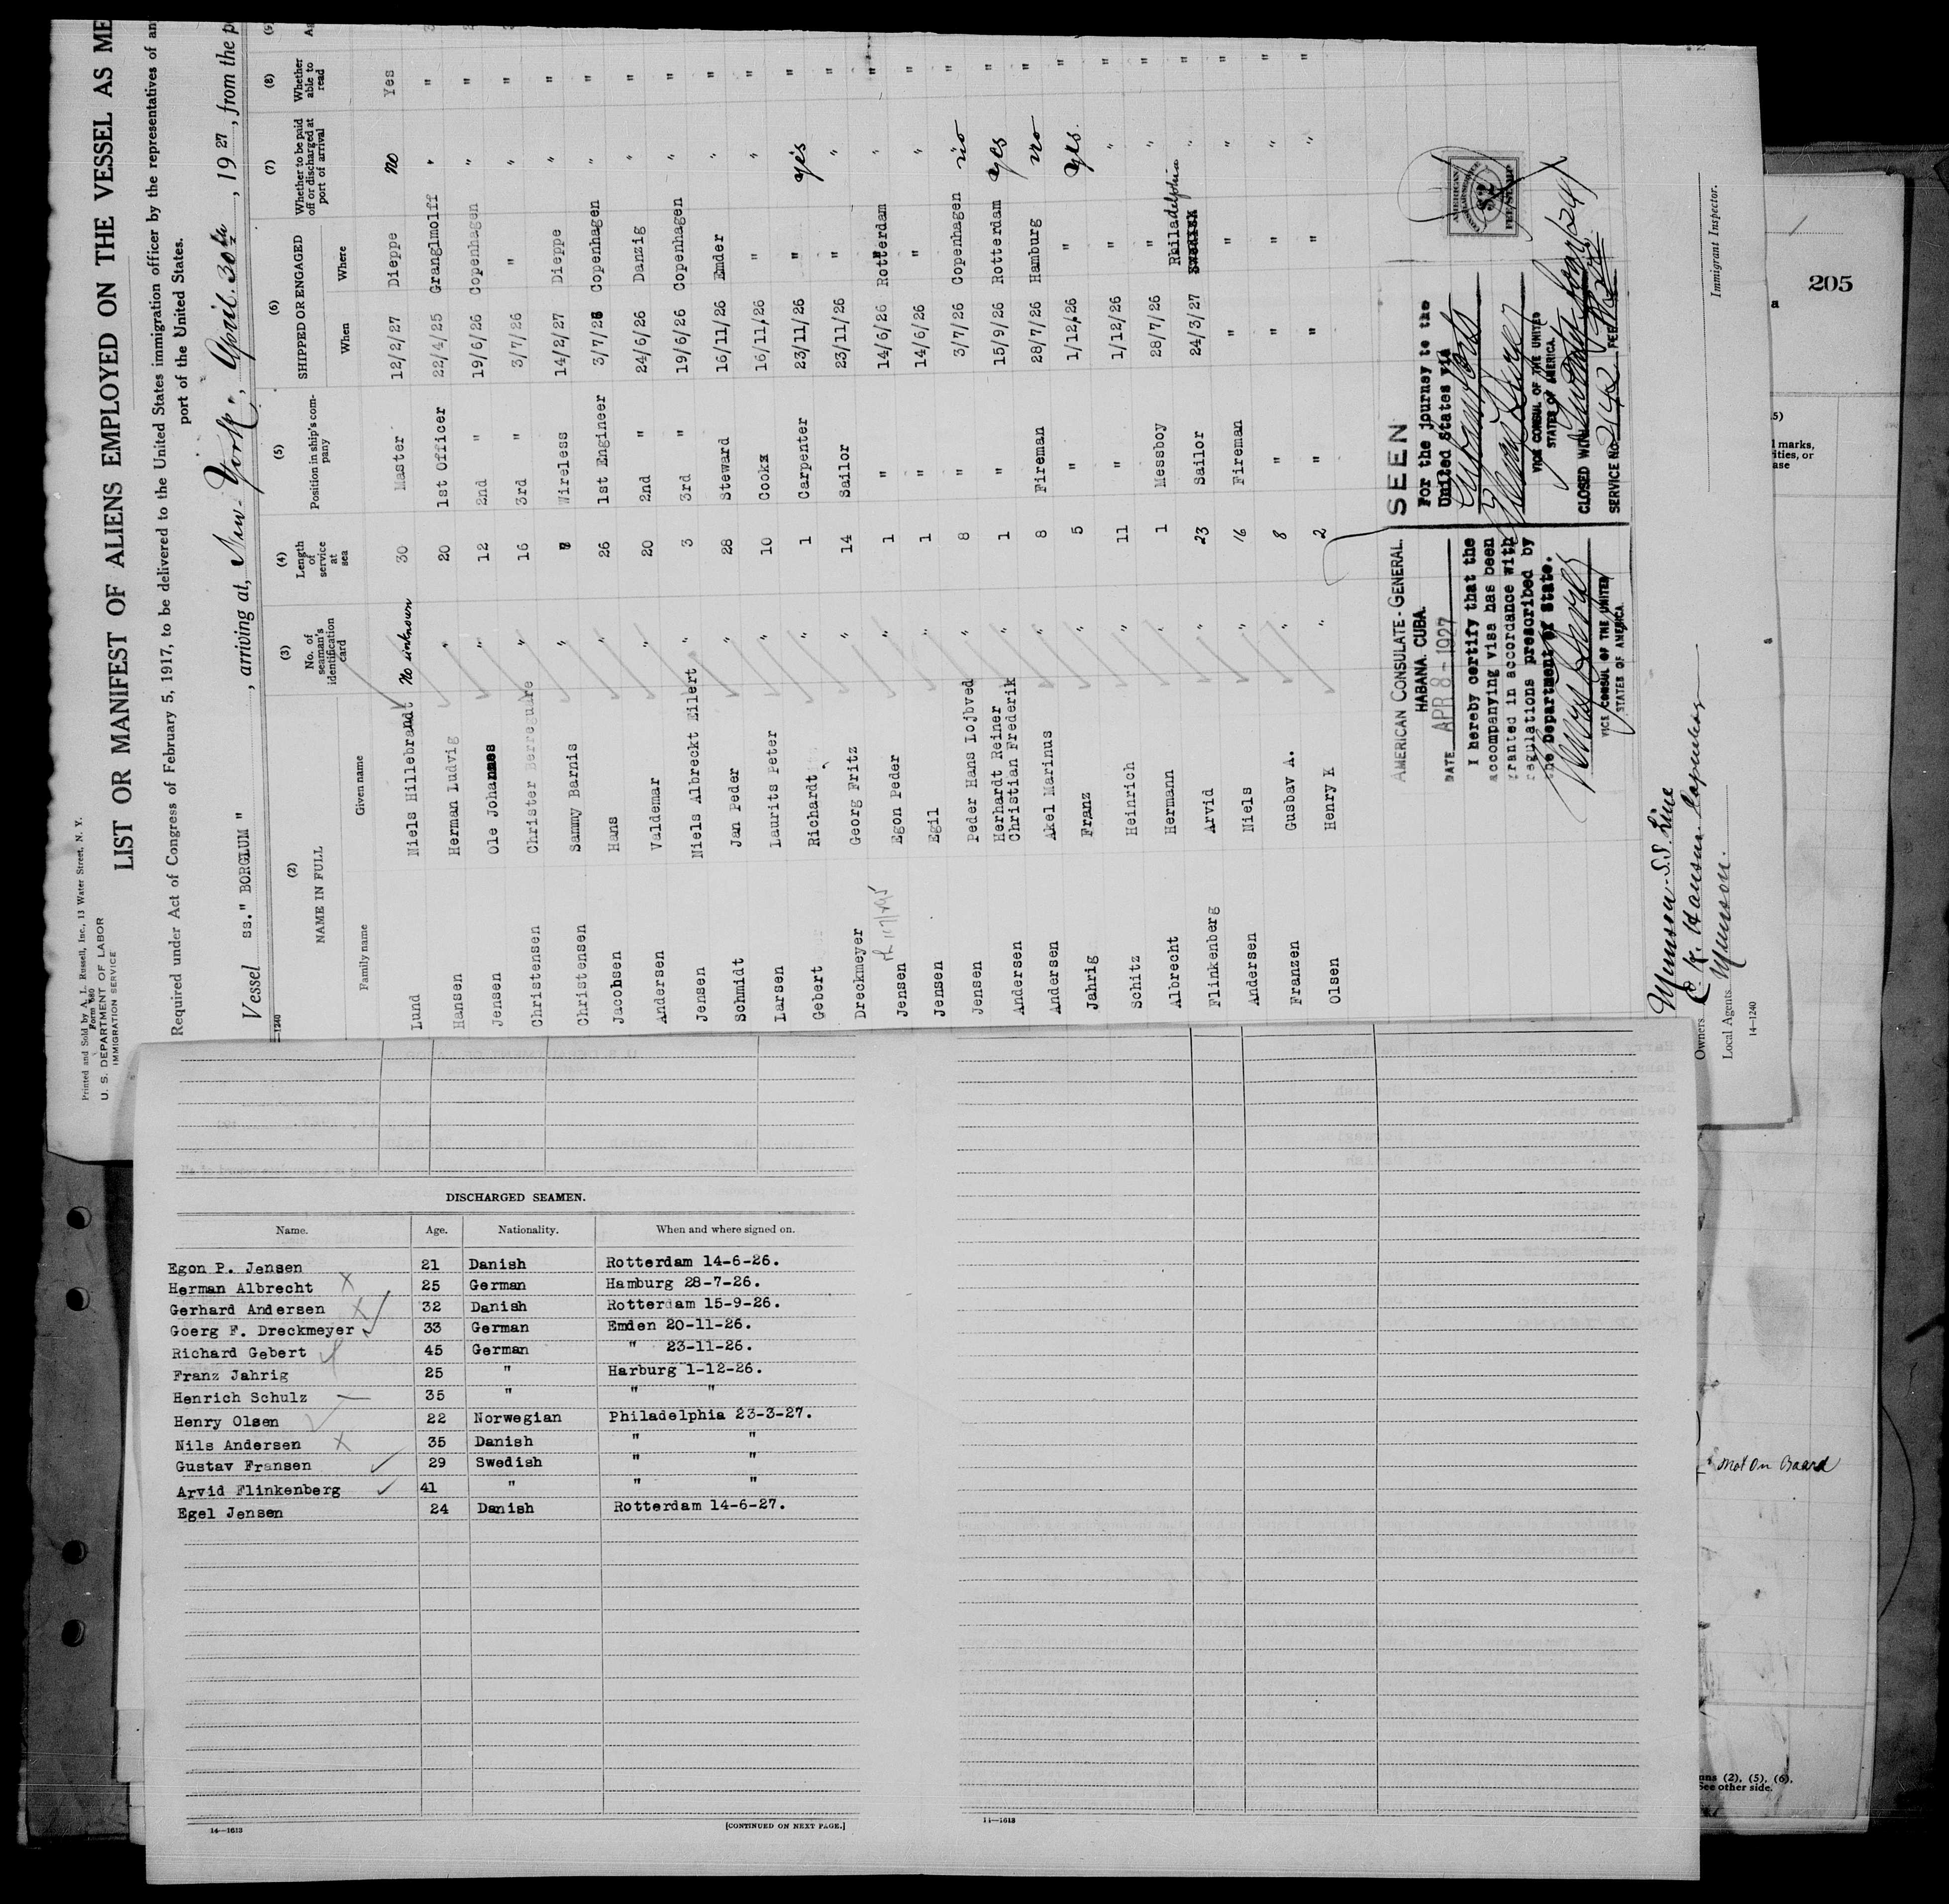 Printed and Sold by A. L. Russell, Inc., 13 Water Street, N. Y.
Form 680
U. S. DEPARTMENT OF LABOR
IMMIGRATION SERVICE
LIST OR MANIFEST OF ALIENS EMPLOYED ON THE VESSEL AS ME
Required under Act of Congress of February 5, 1917, to be delivered to the United States immigration officer by the representatives of an
port of the United States.
Vessel ss." BORGLUM " , arriving at, New-York, April. 30th , 1927, from the p
—1240
(2) (3) (4) (5) (6) (7) (8)
NAME IN FULL No. of seaman's identification card Length of service at sea Position in ship's company SHIPPED OR ENGAGED Whether to be paid off or discharged at port of arrival Whether able to read
Family name Given name When Where
Lund Niels Hillebrandt No unknown 30 Master 12/2/27 Dieppe no Yes
Hansen Herman Ludvig " 20 1st Officer 22/4/25 Granglmolff " "
Jensen Ole Johannes " 12 2nd " 19/6/26 Copenhagen " "
Christensen Christer Berreguare " 16 3rd " 3/7/26 " " "
Christensen Sammy Barnis " Wireless 14/2/27 Dieppe " "
Jacobsen Hans " 26 1st Engineer 3/7/26 Copenhagen " "
Andersen Valdemar " 20 2nd " 24/6/26 Danzig " "
Jensen Niels Albreckt Eilert " 3 3rd " 19/6/26 Copenhagen " "
Schmidt Jan Peder " 28 Steward 16/11/26 Emder " "
Larsen Laurits Peter " 10 Cook 16/11/26 " " "
Gebert Richardt " 1 Carpenter 23/11/26 " yes "
Dreckmeyer Georg Fritz " 14 Sailor 23/11/26 " " "
Jensen Egon Peder " 1 " 14/6/26 Rotterdam " "
Jensen Egil " 1 " 14/6/26 " " "
Jensen Peder Hans Lojbved " 8 " 3/7/26 Copenhagen no "
Andersen Herhardt Reiner Christian Frederik " 1 " 15/9/26 Rotterdam yes "
Andersen Akel Marinus " 8 Fireman 28/7/26 Hamburg no "
Jahrig Franz " 5 " 1/12/26 " yes. "
Schitz Heinrich " 11 " 1/12/26 " " "
Albrecht Hermann " 1 Messboy 28/7/26 " " "
Flinkenberg Arvid " 23 Sailor 24/3/27 Philadelphia " "
Andersen Niels " 16 Fireman " " " "
Franzen Gusbav A. " 8 " " " " "
Olsen Henry K " 2 " " " " "
AMERICAN CONSULATE-GENERAL.
HABANA. CUBA.
DATE APR 8-1927
I hereby certify that the
accompanying visa has been
granted in accordance with
regulations prescribed by
the Department of State.
VICE CONSUL OF THE UNITED
STATES OF AMERICA.
SEEN
For the journey to the
United States via
VICE CONSUL OF THE UNITED
STATES OF AMERICA.
SERVICE No. 2142 FEE
AMERICAN
$2
FEE STAMP
Owners Munson S.S. Line
Local Agents Munson.
14—1240
Immigrant Inspector.
205
marks,
ities, or
ase
DISCHARGED SEAMEN.
Name. Age. Nationality. When and where signed on.
Egon P. Jensen 21 Danish Rotterdam 14-6-26.
Herman Albrecht 25 German Hamburg 28-7-26.
Gerhard Andersen 32 Danish Rotterdam 15-9-26.
Goerg F. Dreckmeyer 33 German Emden 20-11-26.
Richard Gebert 45 German " 23-11-26.
Franz Jahrig 25 " Harburg 1-12-26.
Henrich Schulz 35 " " "
Henry Olsen 22 Norwegian Philadelphia 23-3-27.
Nils Andersen 35 Danish " "
Gustav Fransen 29 Swedish " "
Arvid Flinkenberg 41 " " "
Egel Jensen 24 Danish Rotterdam 14-6-27.
14—1613
[CONTINUED ON NEXT PAGE.]
14—1613
not on Board
ns (2), (5), (6),
See other side.